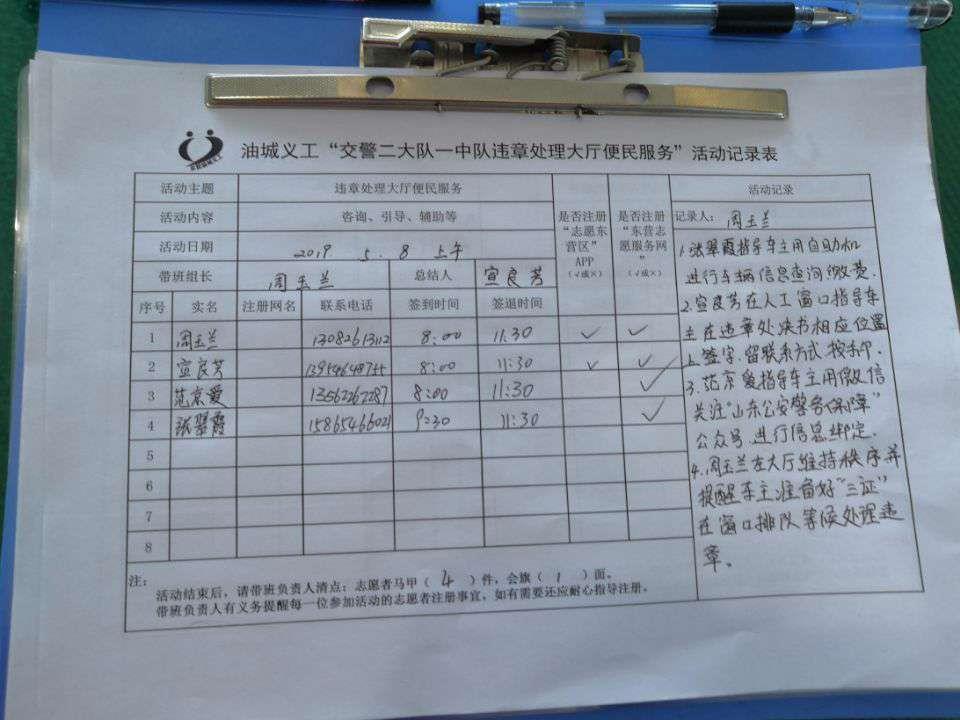 油城义工“交警二大队一中队违章处理大厅便民服务”活动记录表
活动主题 违章处理大厅便民服务
活动内容 咨询、引导、辅助等
活动日期 2019 5.8 上午
带班组长 周玉兰 总结人 宣良芳
是否注册“志愿东营区”APP（√或×）
是否注册“东营志愿服务网”（√或×）
序号 实名 注册网名 联系电话 签到时间 签退时间
1 周玉兰 13082613112 8:00 11:30 √ √
2 宣良芳 13954648755 8:00 11:30 √ √
3 范京爱 13562262287 8:00 11:30 √
4 张翠霞 15865466021 9:30 11:30 √
5
6
7
8
注：
活动结束后，请带班负责人清点：志愿者马甲（4）件，会旗（1）面。
带班负责人有义务提醒每一位参加活动的志愿者注册事宜，如有需要还应耐心指导注册。
活动记录
记录人：周玉兰
1.张翠霞指导车主用自助机
进行车辆信息查询缴费.
2.宣良芳在人工窗口指导车
主在违章处决书相应位置
上签字.留联系方式.按手印.
3.范京爱指导车主用微信
关注“山东公安警务保障”
公众号.进行信息绑定.
4.周玉兰在大厅维持秩序并
提醒车主准备好“三证”
在窗口排队等候处理违
章。